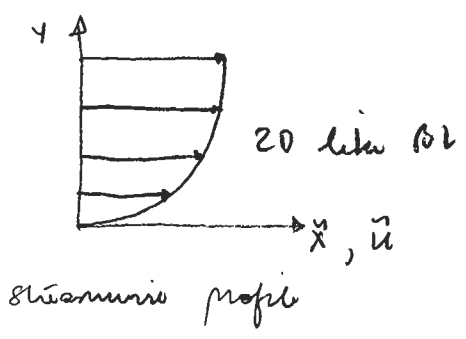 y
2D like BL
x̃, ũ
streamwise profile